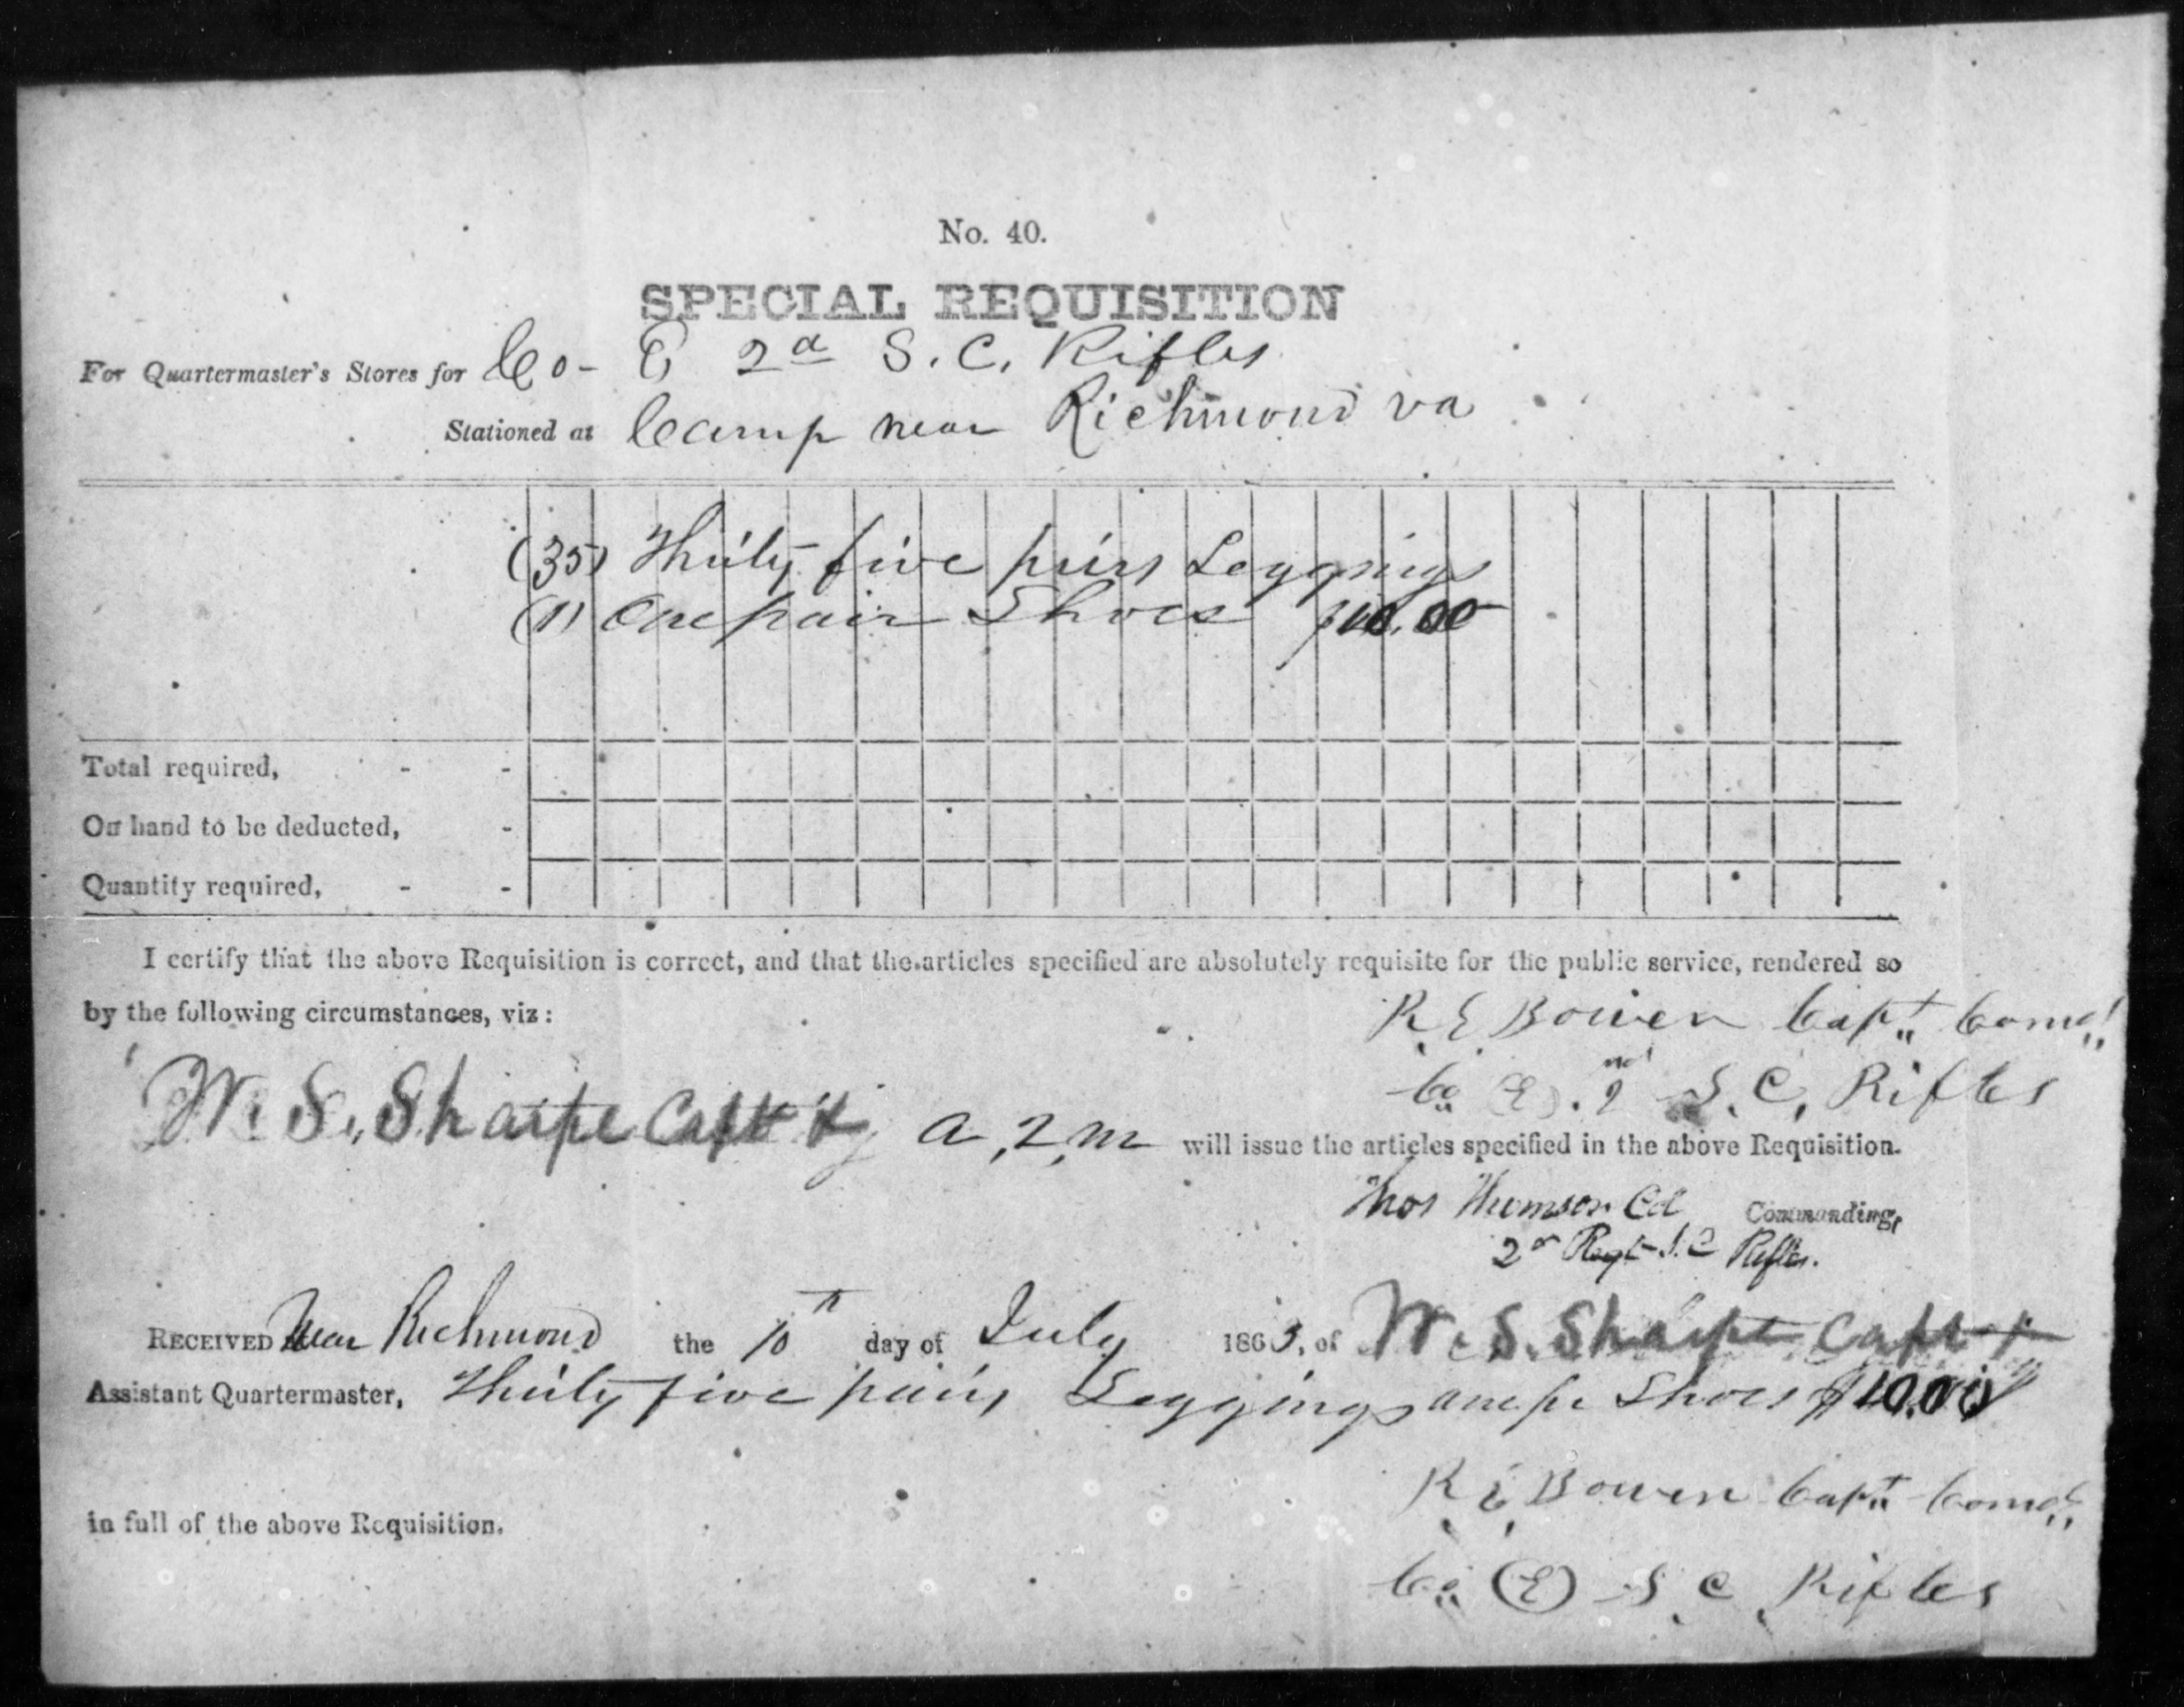 No. 40.
SPECIAL REQUISITION
For Quartermaster's Stores for Co- E 2d S. C. Rifles
Stationed at Camp near Richmond va
(35) Thirty five pairs Leggings
(1) One pair Shoes $10.00
Total required, - -
On hand to be deducted, -
Quantity required, - -
I certify that the above Requisition is correct, and that the articles specified are absolutely requisite for the public service, rendered so
by the following circumstances, viz:
R E Bowen Capt Comd
Co. (E). 2nd S. C. Rifles
W. S. Sharpe Capt & A, Q, M will issue the articles specified in the above Requisition.
Thos Thomson Col Commanding,
2d Regt S. C Rifles.
RECEIVED Near Richmond the 10th day of July 1863, of W. S. Sharpe Capt &
Assistant Quartermaster, Thirty five pairs Leggings one pr Shoes $10.00
R E Bowen Capt Comd
in full of the above Requisition.
Co. (E) S. C. Rifles